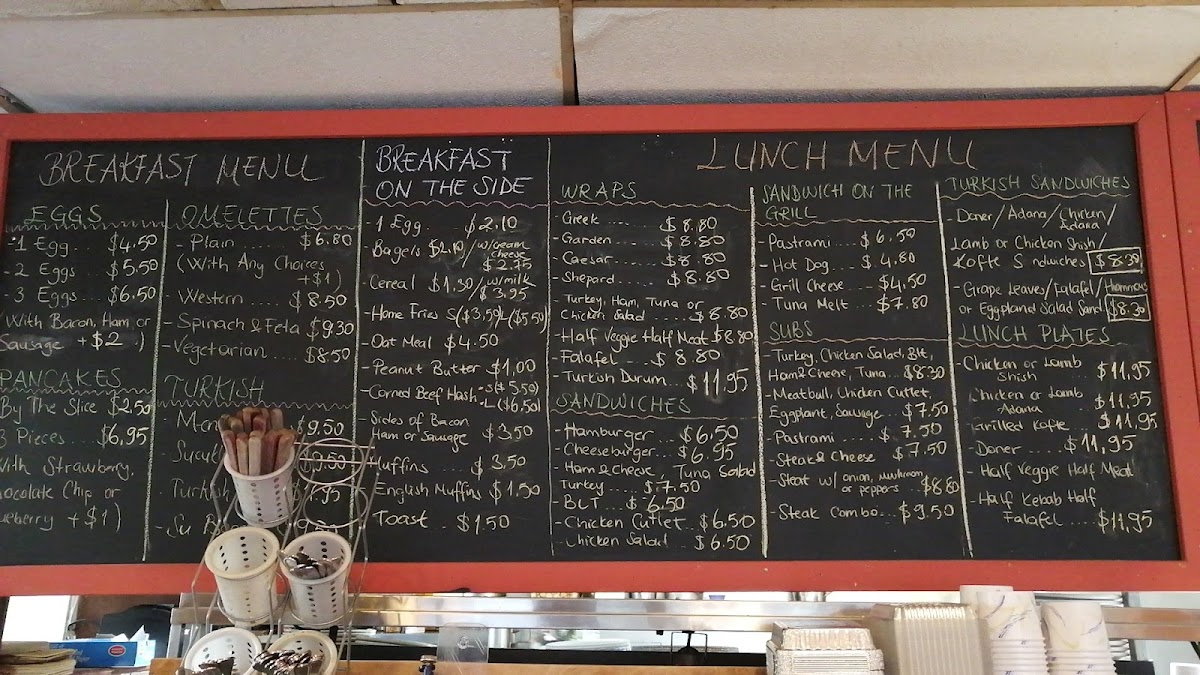 BREAKFAST MENU
EGGS
1 Egg. $4.50
- 2 Eggs. $5.50
- 3 Eggs... $6.50
(With Bacon, Ham or
Sausage +$2 )
PANCAKES
By The Slice $2.50
3 Pieces.... $6.95
With Strawberry,
Chocolate Chip or
ueberry +$1)
OMELETTES
- Plain ....... $6.80
(With Any Choices
+$1)
- Western .... $8.50
- Spinach & Feta $9.30
- Vegetarian .... $8.50
TURKISH
$9.50
- Sucu
$9.50
- Turkish
- Su
BREAKFAST
ON THE SIDE
1 Egg. $2.10
Bagels $2.10/w/cream
cheese
$2.75
- Cereal $1.30/w/milk
$3.95
- Home Fries S($3,50)L($5.50)
- Oat Meal $4.50
- Peanut Butter $1,00
- Corned Beef Hash -S($5.50)
-L($6.50)
Sides of Bacon
Ham or Sausage $3.50
Muffins ... $3.50
English Muffins $1.50
Toast .. $1.50
LUNCH MENU
WRAPS
- Greek .... $8.80
- Garden .... $8.80
- Caesar.... $8.80
- Shepard.... $8.80
Turkey, Ham, Tuna or
Chicken Salad .... $8.80
- Half Veggie Half Meat $8.80
- Falafel.. $8.80
- Turkish Durum... $11,95
SANDWICHES
- Hamburger... $6.50
- Cheeseburger... $6.95
- Ham & cheese, Tuna Salad
Turkey .... $7.50
- BLT .. $6.50
- Chicken Cutlet. $6.50
- Chicken Salad .. $6.50
SANDWICH ON THE
GRILL
- Pastrami.... $6.50
- Hot Dog.... $4.80
- Grill Cheese .. $4,50
- Tuna Melt ... $7.80
SUBS
- Turkey, Chicken Salad, Blt,
Ham & Cheese, Tuna .... $8.30
- Meatball, Chicken Cutlet,
Eggplant, Sausage ... $7.50
- Pastrami ...... $7.50
- Steak & Cheese .. $7.50
- Steak w/ onion, mushroom
or peppers . $8.80
- Steak Combo... $9.50
TURKISH SANDWICHES
- Doner/Adana/Chicken/
Adana
Lamb or Chicken Shish/
Kofte Sandwiches $8.30
- Grape Leaves/Falafel/Hommous
or Eggpland Salad Sand $8.30
LUNCH PLATES
- Chicken or Lamb
Shish $11,95
- Chicken or Lamb
Adana $11,95
- Grilled Kofte .. $11,95
- Doner ..... $11,95
- Half Veggie Half Meat
- Half Kebab Half
Falafel.... $11,95